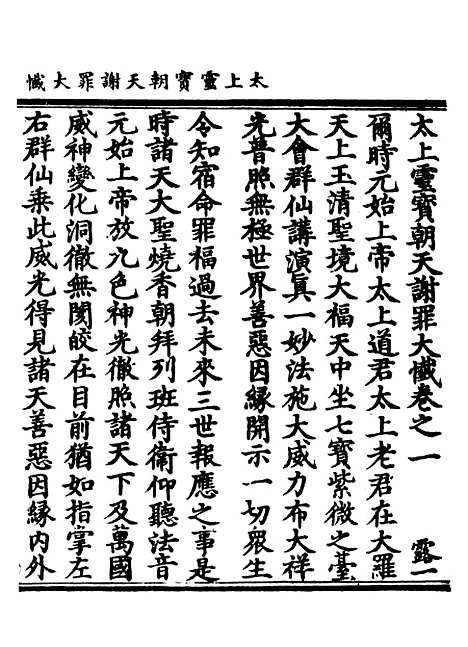 太上靈寶朝天謝罪大懺
太上靈寶朝天謝罪大懺卷之一　露一
爾時元始上帝太上道君太上老君在大羅
天上玉清聖境大福天中坐七寶紫微之臺
大會群仙講演眞一妙法施大威力布大祥
光普照無極世界善惡因緣開示一切衆生
令知宿命罪福過去未來三世報應之事是
時諸天大聖燒香朝拜列班侍衛仰聽法音
元始上帝放九色神光徹照諸天下及萬國
威神變化洞徹無閡皎在目前猶如指掌左
右群仙乘此威光得見諸天善惡因緣內外